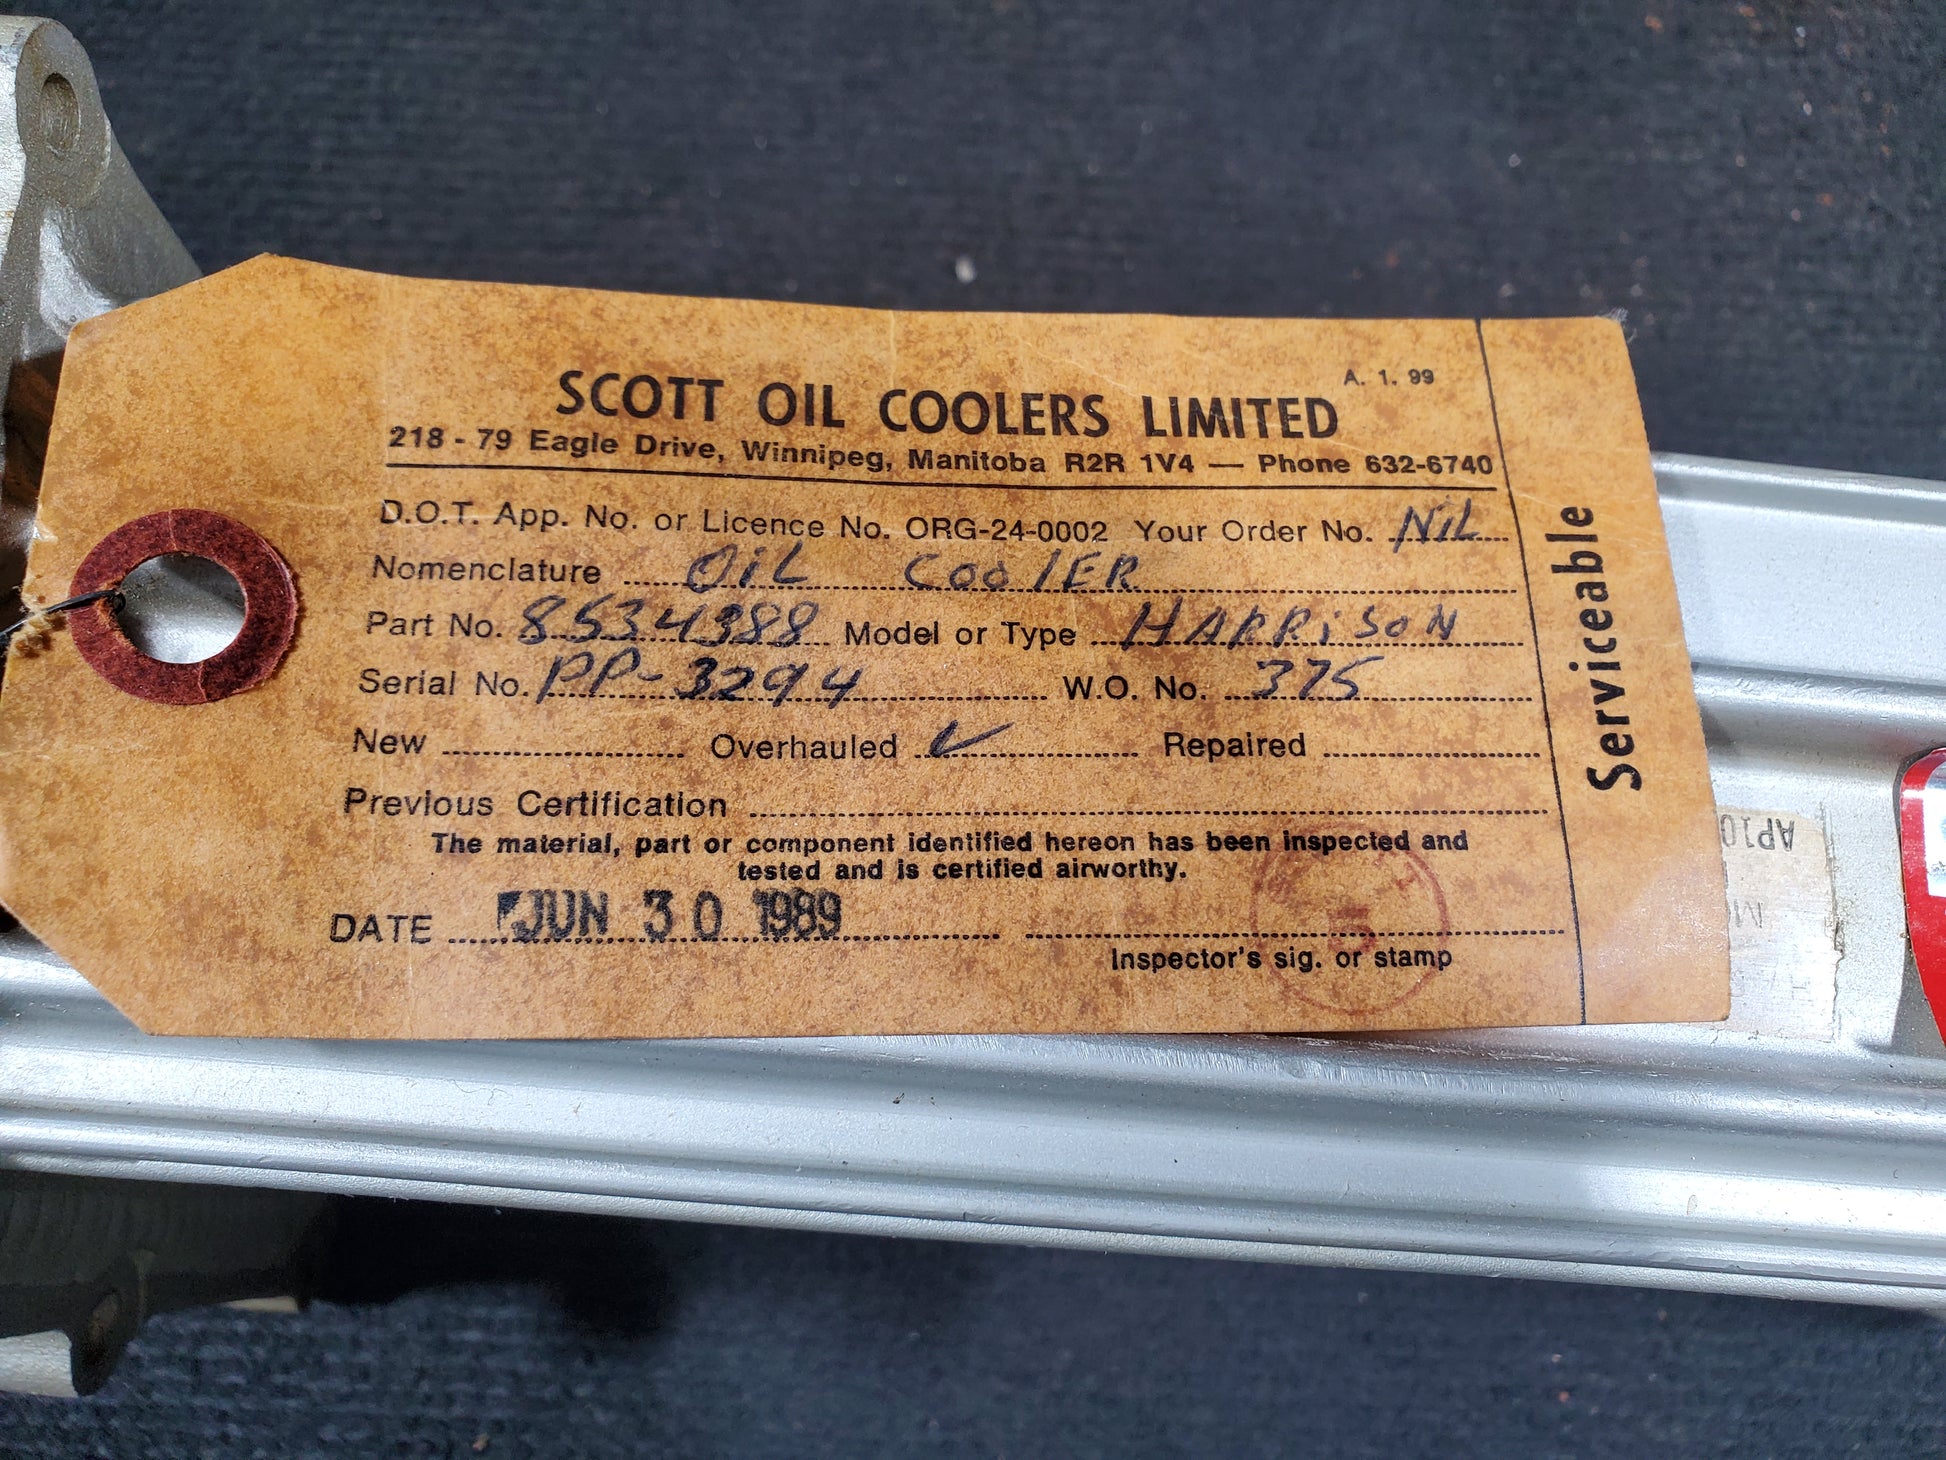 A. 1. 99
SCOTT OIL COOLERS LIMITED
218 - 79 Eagle Drive, Winnipeg, Manitoba R2R 1V4 — Phone 632-6740
D.O.T. App. No. or Licence No. ORG-24-0002 Your Order No. NiL
Nomenclature OiL COOlER
Part No. 8534388 Model or Type HARRiSON
Serial No. PP-3294 W.O. No. 375
New Overhauled ✓ Repaired
Previous Certification
The material, part or component identified hereon has been inspected and
tested and is certified airworthy.
DATE JUN 30 1989
5
Inspector's sig. or stamp
Serviceable
AP10